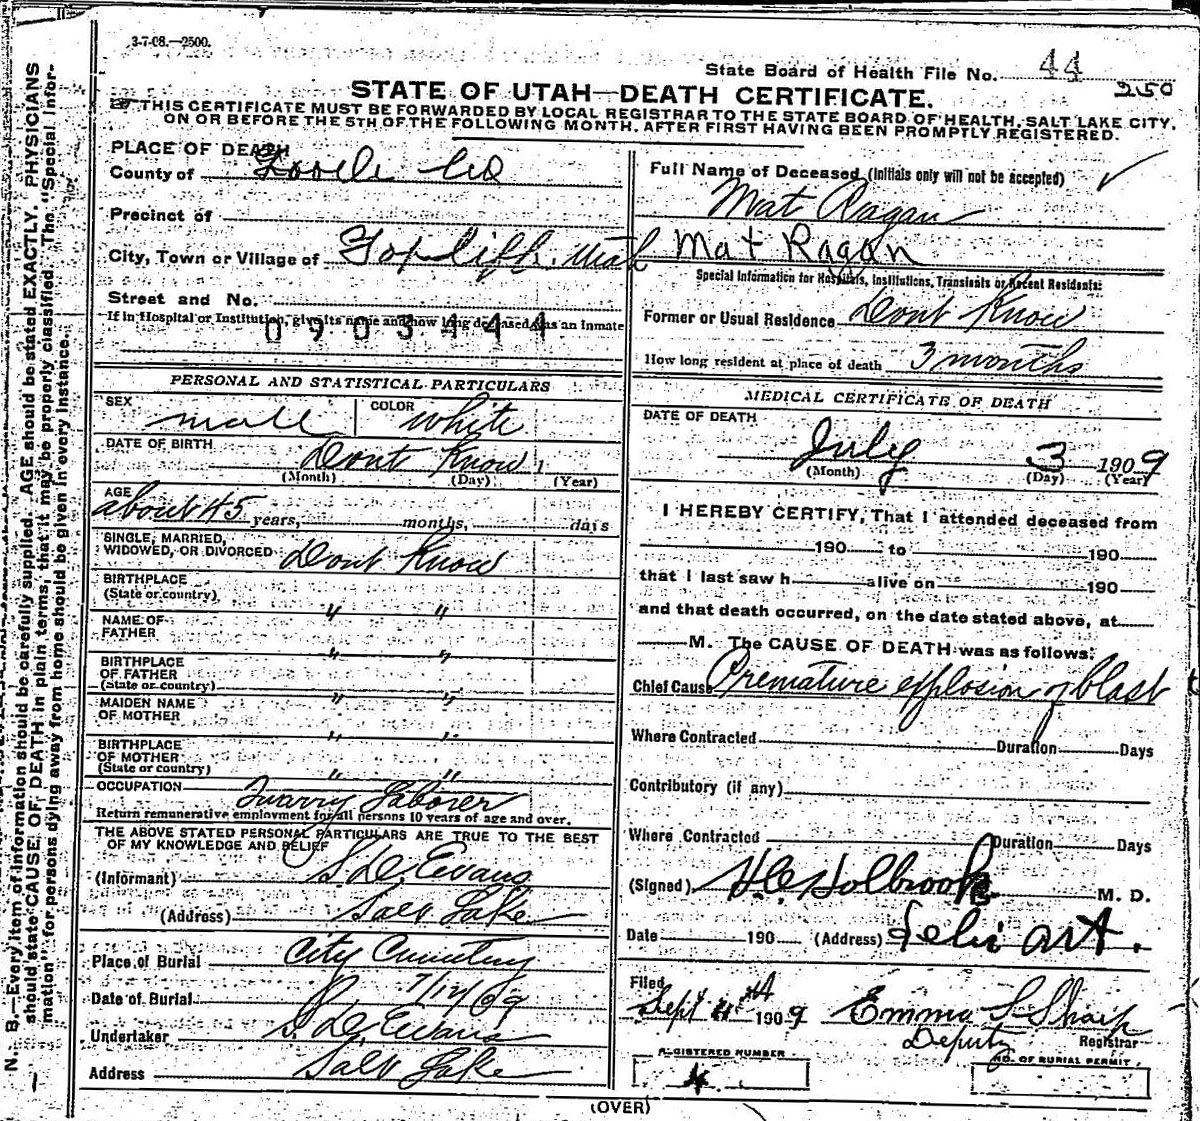 3-7-08.—2500.
State Board of Health File No. 44
250
STATE OF UTAH—DEATH CERTIFICATE.
THIS CERTIFICATE MUST BE FORWARDED BY LOCAL REGISTRAR TO THE STATE BOARD OF HEALTH, SALT LAKE CITY,
ON OR BEFORE THE 5TH OF THE FOLLOWING MONTH, AFTER FIRST HAVING BEEN PROMPTLY REGISTERED.
N. B.—Every item of information should be carefully supplied. AGE should be stated EXACTLY. PHYSICIANS
should state CAUSE OF DEATH in plain terms, that it may be properly classified. The "Special Infor-
mation" for persons dying away from home should be given in every instance.
PLACE OF DEATH
County of Tooele Co
Precinct of
City, Town or Village of Topliff Utah
Street and No.
If in Hospital or Institution, give its name and how long deceased was an Inmate
0903444
Full Name of Deceased (Initials only will not be accepted)
Mat Ragan
Mat Ragan
Special Information for Hospitals, Institutions, Transients or Recent Residents:
Former or Usual Residence Dont Know
How long resident at place of death 3 months
PERSONAL AND STATISTICAL PARTICULARS
SEX male COLOR white
DATE OF BIRTH Dont Know
(Month) (Day) (Year)
AGE about 45 years, months, days
SINGLE, MARRIED,
WIDOWED, OR DIVORCED Dont Know
BIRTHPLACE
(State or country) " "
NAME OF
FATHER " "
BIRTHPLACE
OF FATHER
(State or country) " "
MAIDEN NAME
OF MOTHER " "
BIRTHPLACE
OF MOTHER
(State or country) " "
OCCUPATION Quarry Laborer
Return remunerative employment for all persons 10 years of age and over.
THE ABOVE STATED PERSONAL PARTICULARS ARE TRUE TO THE BEST
OF MY KNOWLEDGE AND BELIEF
(Informant) S. D. Evans
(Address) Salt Lake
Place of Burial City Cemetery
Date of Burial 7/12/09
Undertaker S. D. Evans
Address Salt Lake
MEDICAL CERTIFICATE OF DEATH
DATE OF DEATH
July 3 1909
(Month) (Day) (Year)
I HEREBY CERTIFY, That I attended deceased from
190 to 190
that I last saw h alive on 190
and that death occurred, on the date stated above, at
M. The CAUSE OF DEATH was as follows:
Chief Cause Premature explosion of blast
Where Contracted Duration Days
Contributory (if any)
Where Contracted Duration Days
(Signed) Holbrook M. D.
Date 190 (Address) Lehi
Filed
Sept 4th 1909 Emma S Sharp
Deputy Registrar
REGISTERED NUMBER
4.
NO. OF BURIAL PERMIT
(OVER)